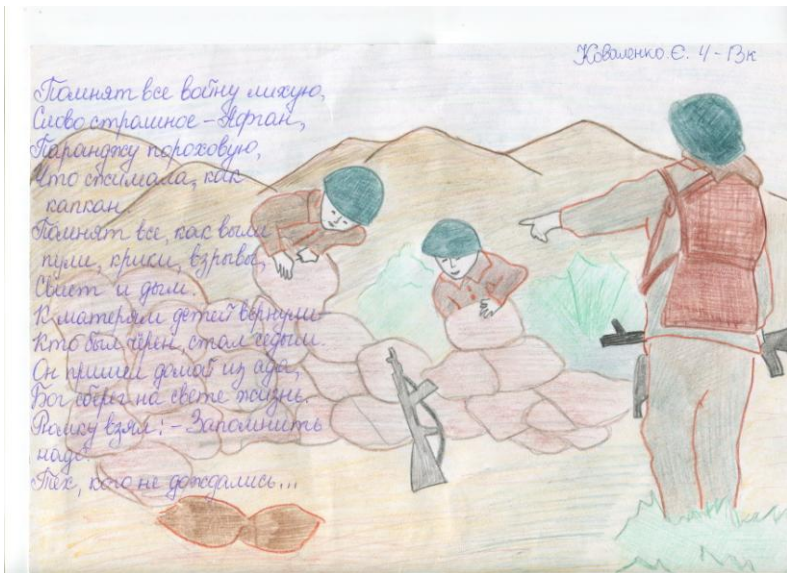 Коваленко. Є. 4-Вк
Помнят все войну лихую,
Слово страшное – Афган,
Паранджу пороховую,
Что сжимала, как
капкан.
Помнят все, как выли
пули, крики, взрывы,
Свист и дым.
К матерям детей вернули –
Кто был черен, стал седым.
Он пришел домой из ада,
Бог сберег на свете жизнь.
Рюмку взял: – Запомнить
надо
Тех, кого не дождались...